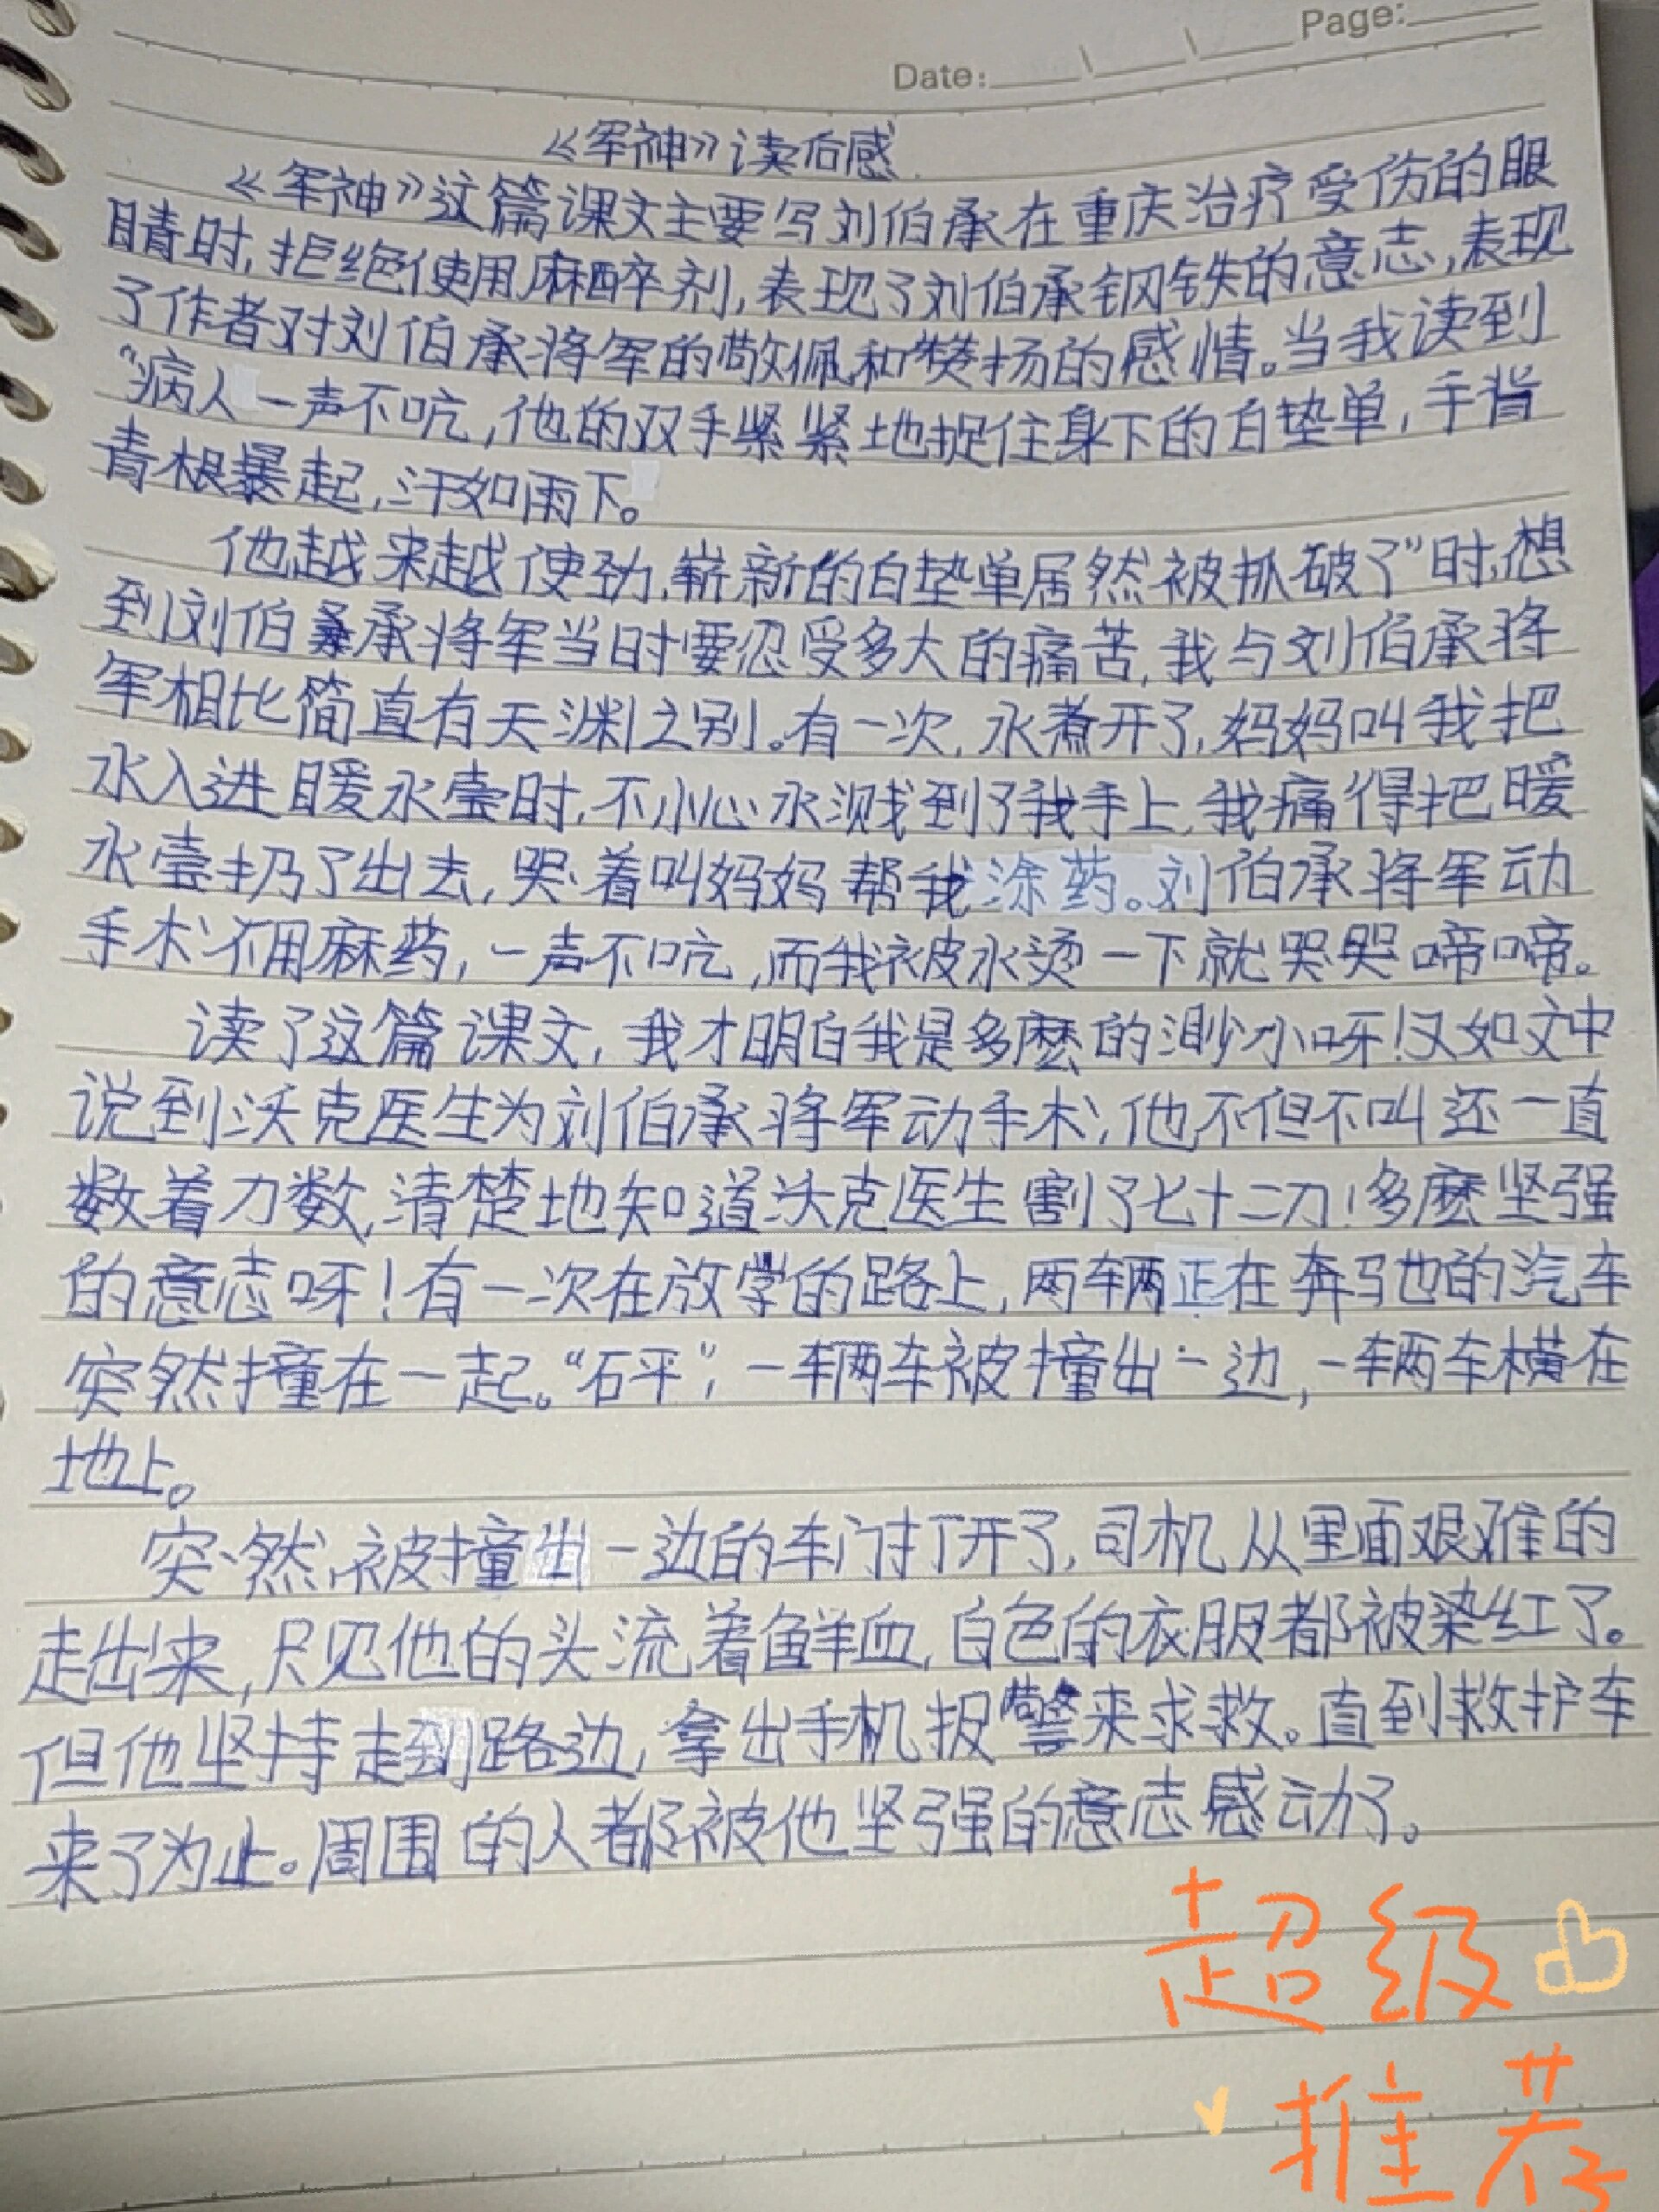 Page:
Date:
《军神》读后感
《军神》这篇课文主要写刘伯承在重庆治疗受伤的眼
睛时,拒绝使用麻醉剂,表现了刘伯承钢铁的意志,表现
了作者对刘伯承将军的敬佩和赞扬的感情。当我读到
“病人一声不吭,他的双手紧紧地捉住身下的白垫单,手背
青根暴起,汗如雨下。
他越来越使劲,崭新的白垫单居然被抓破了”时,想
到刘伯承将军当时要忍受多大的痛苦,我与刘伯承将
军相比简直有天渊之别。有一次,水煮开了,妈妈叫我把
水入进暖水壶时,不小心水溅到了我手上,我痛得把暖
水壶扔了出去,哭着叫妈妈帮我涂药。刘伯承将军动
手术不用麻药,一声不吭,而我被水烫一下就哭哭啼啼。
读了这篇课文,我才明白我是多麽的渺小呀!又如文中
说到沃克医生为刘伯承将军动手术,他不但不叫还一直
数着刀数,清楚地知道沃克医生割了七十二刀!多麽坚强
的意志呀!有一次在放学的路上,两辆正在奔驰的汽车
突然撞在一起。“砰”,一辆车被撞出一边,一辆车横在
地上。
突然,被撞出一边的车门打开了,司机从里面艰难的
走出来,只见他的头流着鲜血,白色的衣服都被染红了。
但他坚持走到路边,拿出手机报警来求救。直到救护车
来了为止。周围的人都被他坚强的意志感动了。
超级
推荐